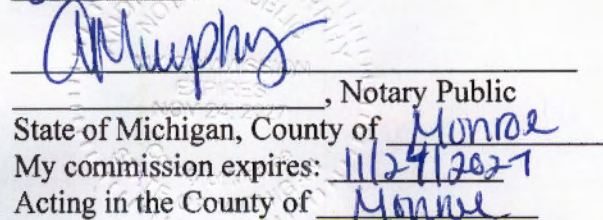 AMurphy
, Notary Public
State of Michigan, County of Monroe
My commission expires: 11/24/2027
Acting in the County of Monroe